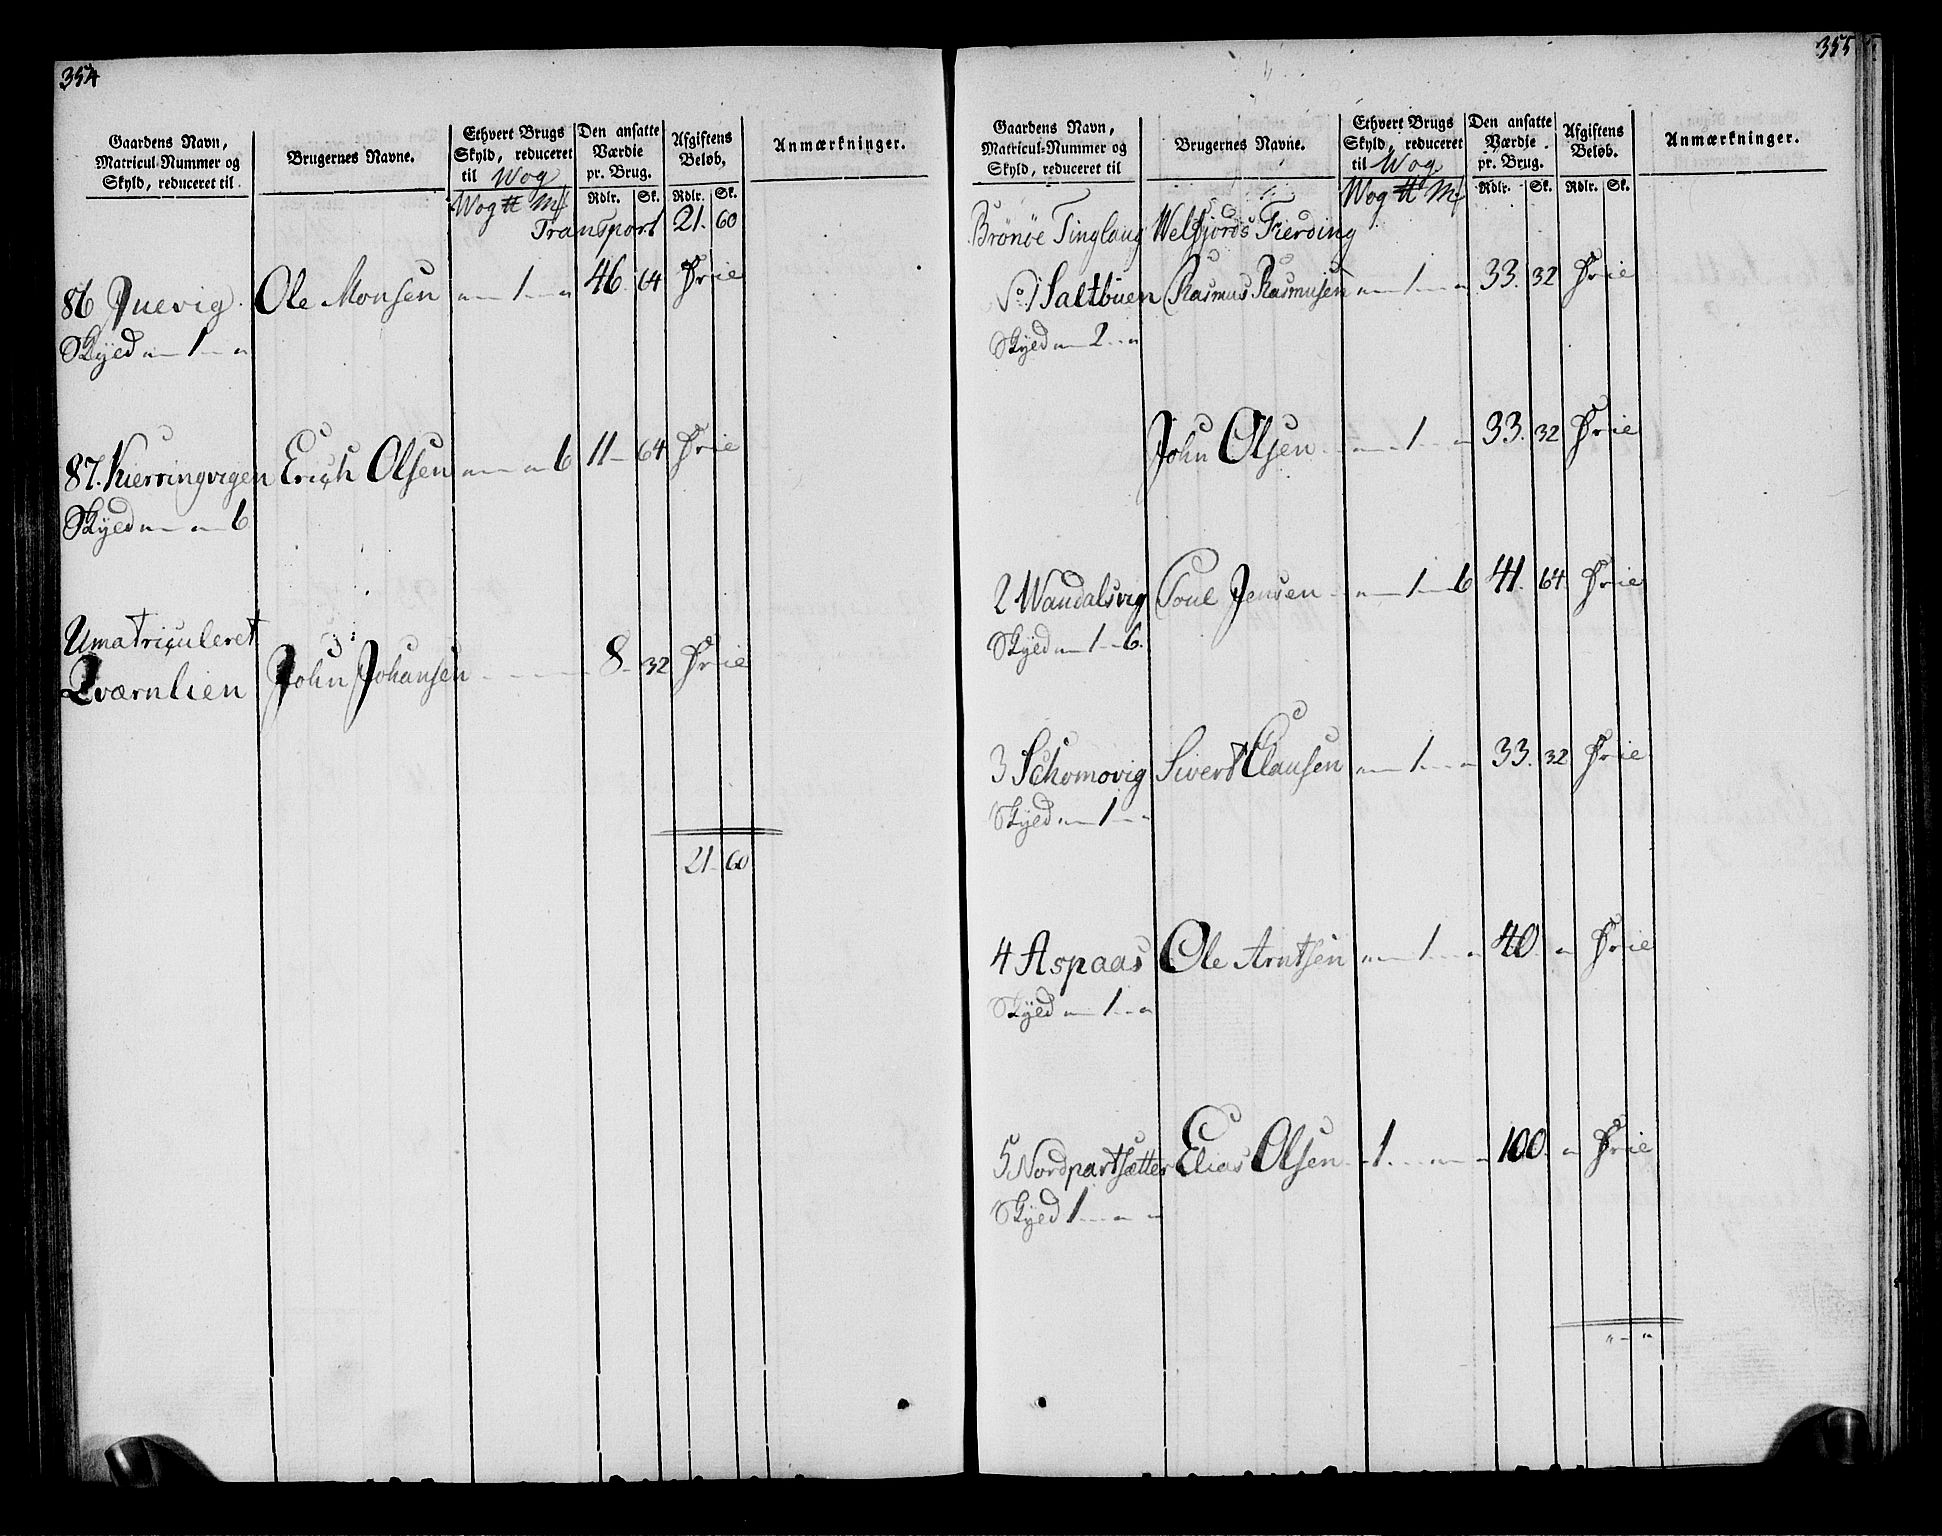 354
Gaardens Navn, Matricul-Nummer og Skyld, reduceret til
Brugernes Navne.
Ethvert Brugs Skyld, reduceret til Wog
Den ansatte Værdie pr. Brug.
Afgiftens Beløb,
Anmærkninger.
Wog ℔ Mk Rdlr. Sk. Rdlr. Sk.
Transport 21. 60
86 Juevig. Ole Monsen " — 1 — " 46. 64 Frie
Skyld " — 1 — "
87. Kierringvigen Erich Olsen " — " — 6 11 — 64 Frie
Skyld " — " — 6
Umatriculeret
Qværnlien John Johansen 8 — 32 Frie
21 — 60
355
Gaardens Navn, Matricul-Nummer og Skyld, reduceret til
Brugernes Navne.
Ethvert Brugs Skyld, reduceret til Wog
Den ansatte Værdie pr. Brug.
Afgiftens Beløb.
Anmærkninger.
Wog ℔ Mk Rdlr. Sk. Rdlr. Sk.
Brönöe Tinglaug Welfjords Fierding
No. 1 Saltbuen Rasmus Rasmusen " — 1 — " 33. 32 Frie
Skyld " — 2 — "
John Olsen " — 1 — " 33. 32 Frie
2 Wandalsvig Poul Jensen " — 1 — 6 41. 64 Frie
Skyld " — 1 — 6.
3 Schomovig Sivert Clausen " — 1 — " 33. 32 Frie
Skyld " — 1 — "
4 Aspaas Ole Arntsen " — 1 — " 40 " Frie
Skyld " — 1 — "
5 Nordpartsætter Elias Olsen 1 — " — " 100. " Frie
Skyld 1 — " — "
" — "